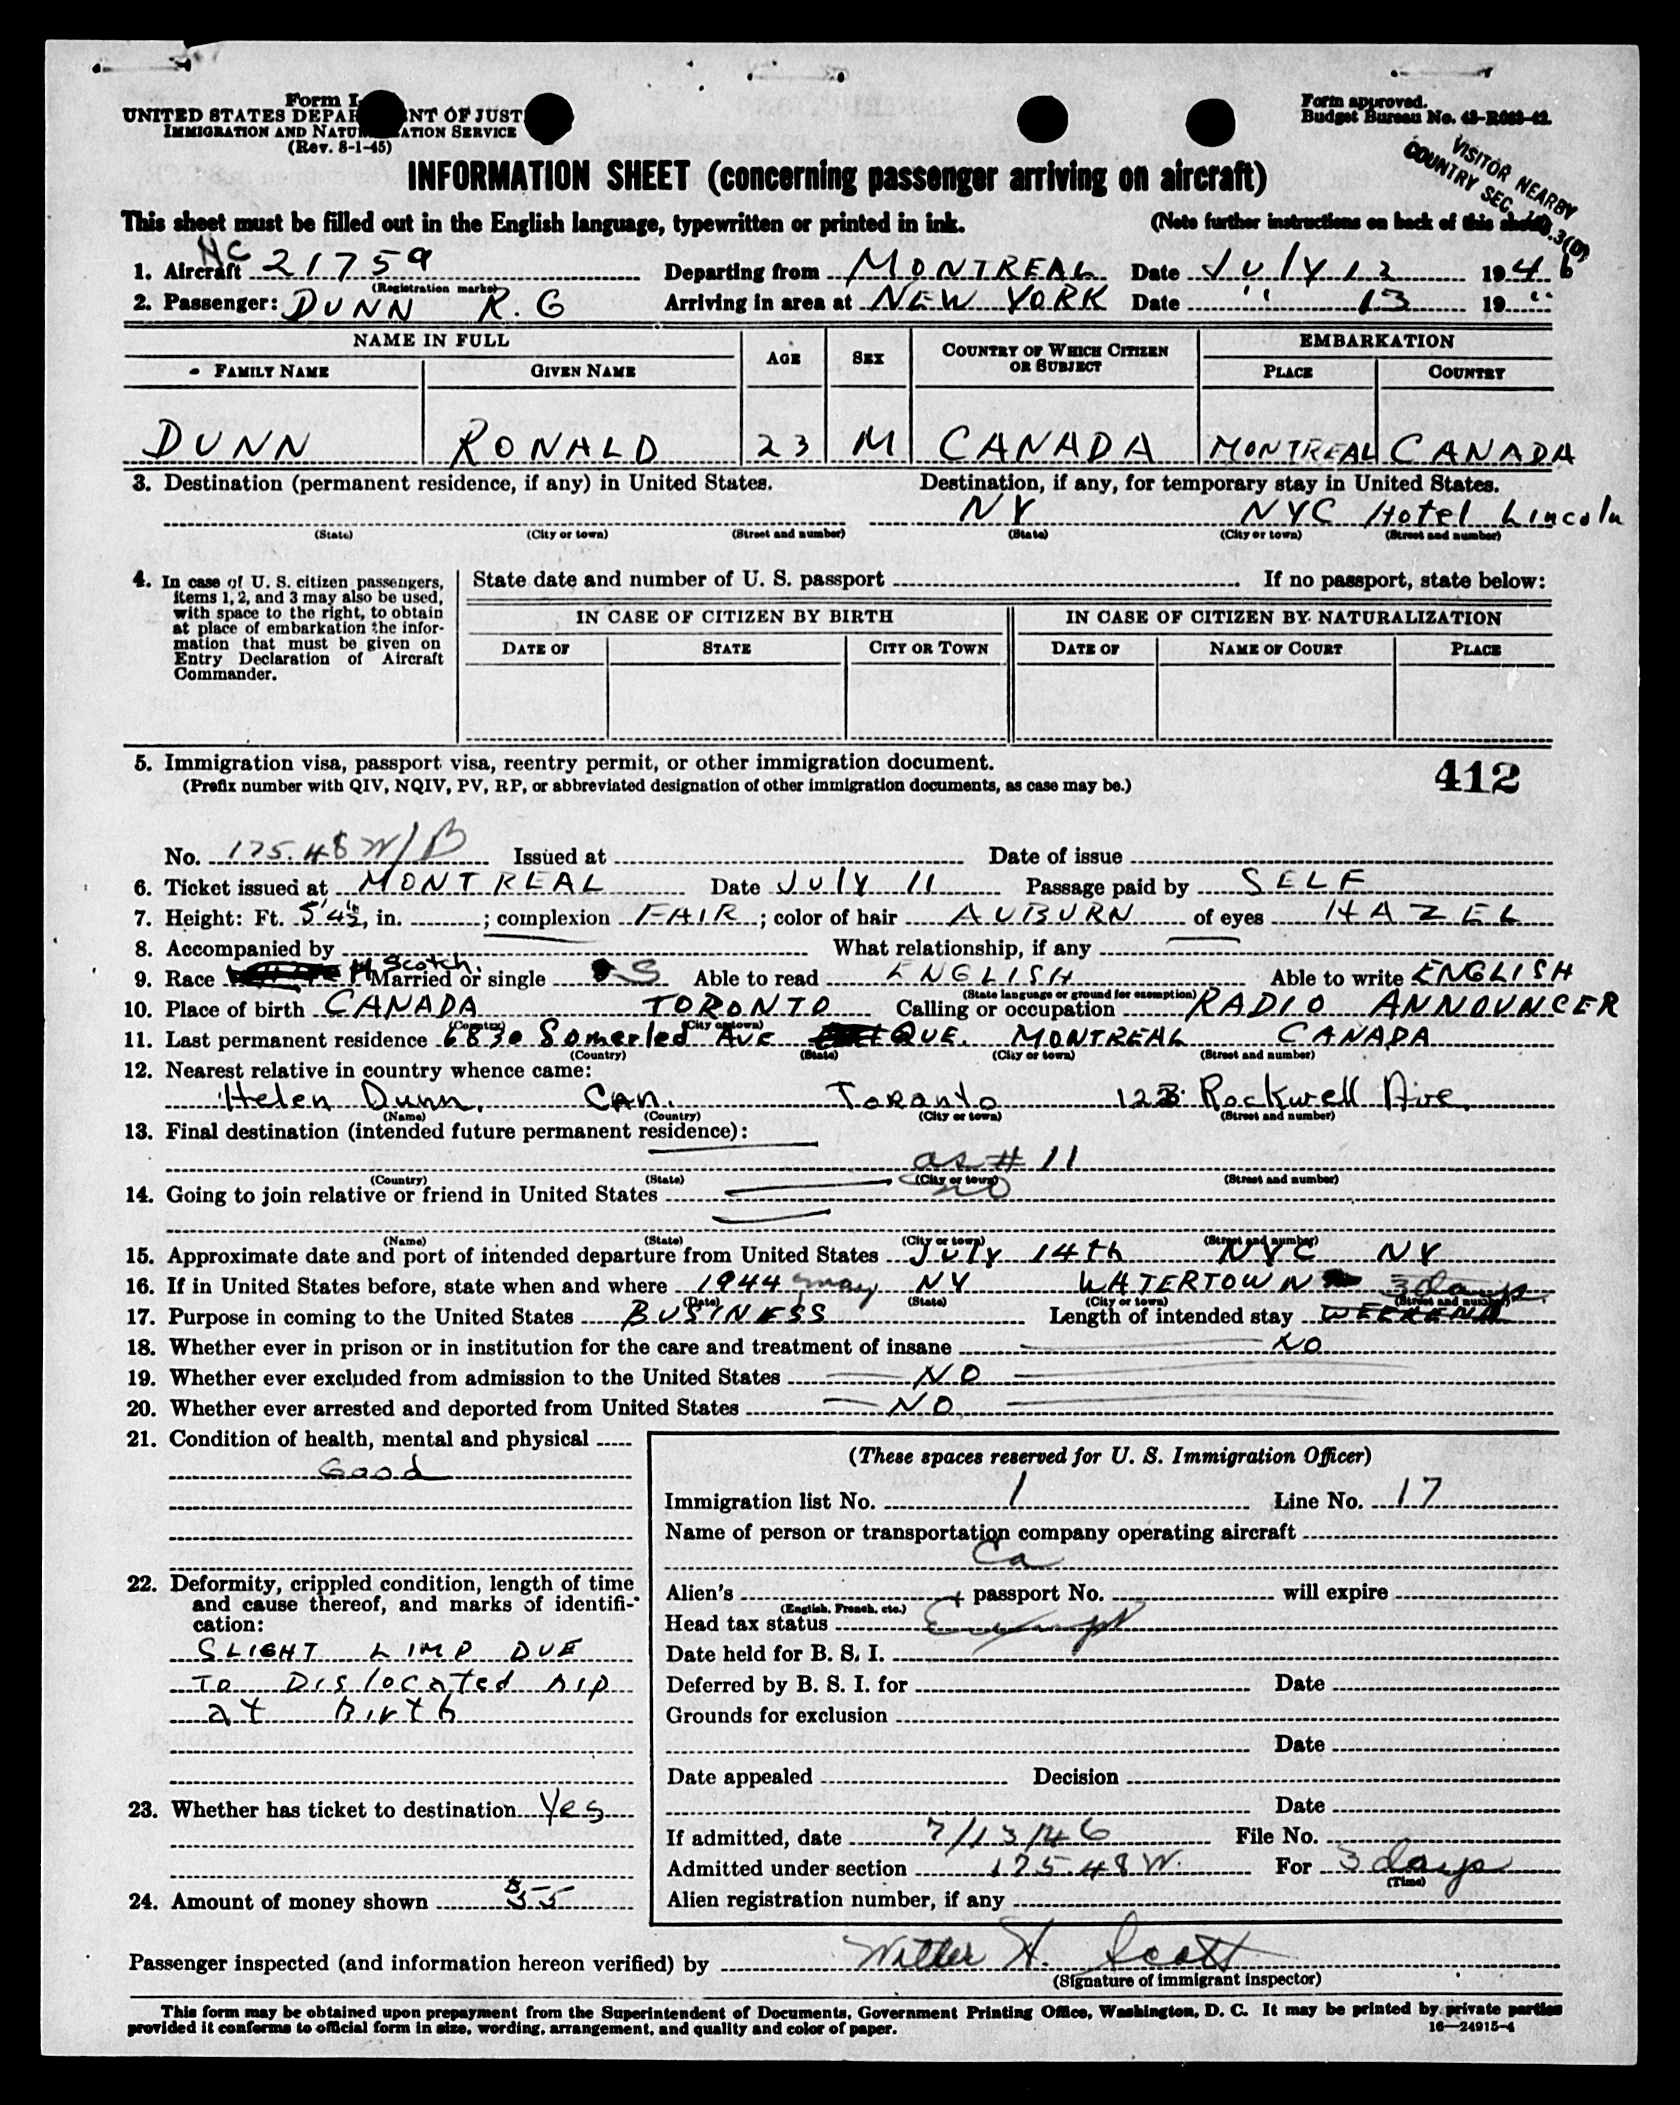 Form I-
UNITED STATES DEPA NT OF JUST
IMMIGRATION AND NATU ATION SERVICE
(Rev. 8-1-45)
Form approved.
Budget Bureau No. 43-R083-42.
VISITOR NEARBY
COUNTRY SEC.
INFORMATION SHEET (concerning passenger arriving on aircraft)
This sheet must be filled out in the English language, typewritten or printed in ink. (Note further instructions on back of this sheet)
1. Aircraft NC 21759 Departing from MONTREAL Date JULY 12 1946
(Registration marks)
2. Passenger: DUNN R. G Arriving in area at NEW YORK Date " 13 19 "
NAME IN FULL AGE SEX COUNTRY OF WHICH CITIZEN OR SUBJECT EMBARKATION
FAMILY NAME GIVEN NAME PLACE COUNTRY
DUNN RONALD 23 M CANADA MONTREAL CANADA
3. Destination (permanent residence, if any) in United States. Destination, if any, for temporary stay in United States.
NY NYC Hotel Lincoln
(State) (City or town) (Street and number) (State) (City or town) (Street and number)
4. In case of U. S. citizen passengers, items 1, 2, and 3 may also be used, with space to the right, to obtain at place of embarkation the information that must be given on Entry Declaration of Aircraft Commander.
State date and number of U. S. passport If no passport, state below:
IN CASE OF CITIZEN BY BIRTH IN CASE OF CITIZEN BY NATURALIZATION
DATE OF STATE CITY OR TOWN DATE OF NAME OF COURT PLACE
5. Immigration visa, passport visa, reentry permit, or other immigration document. 412
(Prefix number with QIV, NQIV, PV, RP, or abbreviated designation of other immigration documents, as case may be.)
No. 175.48 W/B Issued at Date of issue
6. Ticket issued at MONTREAL Date JULY 11 Passage paid by SELF
7. Height: Ft. 5'4½, in. ; complexion FAIR ; color of hair AUBURN of eyes HAZEL
8. Accompanied by What relationship, if any
9. Race Scotch. Married or single S Able to read ENGLISH Able to write ENGLISH
(State language or ground for exemption)
10. Place of birth CANADA TORONTO Calling or occupation RADIO ANNOUNCER
(Country) (City or town)
11. Last permanent residence 6830 Somerled Ave QUE. MONTREAL CANADA
(Country) (State) (City or town) (Street and number)
12. Nearest relative in country whence came:
Helen Dunn. CAN. Toronto 123 Rockwell Ave.
(Name) (Country) (City or town) (Street and number)
13. Final destination (intended future permanent residence):
as # 11
(Country) (State) (City or town) (Street and number)
14. Going to join relative or friend in United States no
(Name) (State) (City or town) (Street and number)
15. Approximate date and port of intended departure from United States July 14th NYC NY
16. If in United States before, state when and where 1944 may NY WATERTOWN 3 days
(Date) (State) (City or town) (Street and number)
17. Purpose in coming to the United States BUSINESS Length of intended stay WEEKEND
18. Whether ever in prison or in institution for the care and treatment of insane NO
19. Whether ever excluded from admission to the United States NO
20. Whether ever arrested and deported from United States NO
21. Condition of health, mental and physical
Good
22. Deformity, crippled condition, length of time and cause thereof, and marks of identification:
SLIGHT LIMP DUE
TO Dislocated hip
at Birth
23. Whether has ticket to destination Yes
24. Amount of money shown $35
(These spaces reserved for U. S. Immigration Officer)
Immigration list No. 1 Line No. 17
Name of person or transportation company operating aircraft
Ca
Alien's passport No. will expire
(English, French, etc.)
Head tax status Exempt
Date held for B. S. I.
Deferred by B. S. I. for Date
Grounds for exclusion
Date
Date appealed Decision
Date
If admitted, date 7/13/46 File No.
Admitted under section 175.48 W. For 3 days
(Time)
Alien registration number, if any
Passenger inspected (and information hereon verified) by Walter H. Scott
(Signature of immigrant inspector)
This form may be obtained upon prepayment from the Superintendent of Documents, Government Printing Office, Washington, D. C. It may be printed by private parties
provided it conforms to official form in size, wording, arrangement, and quality and color of paper. 16—24915-4